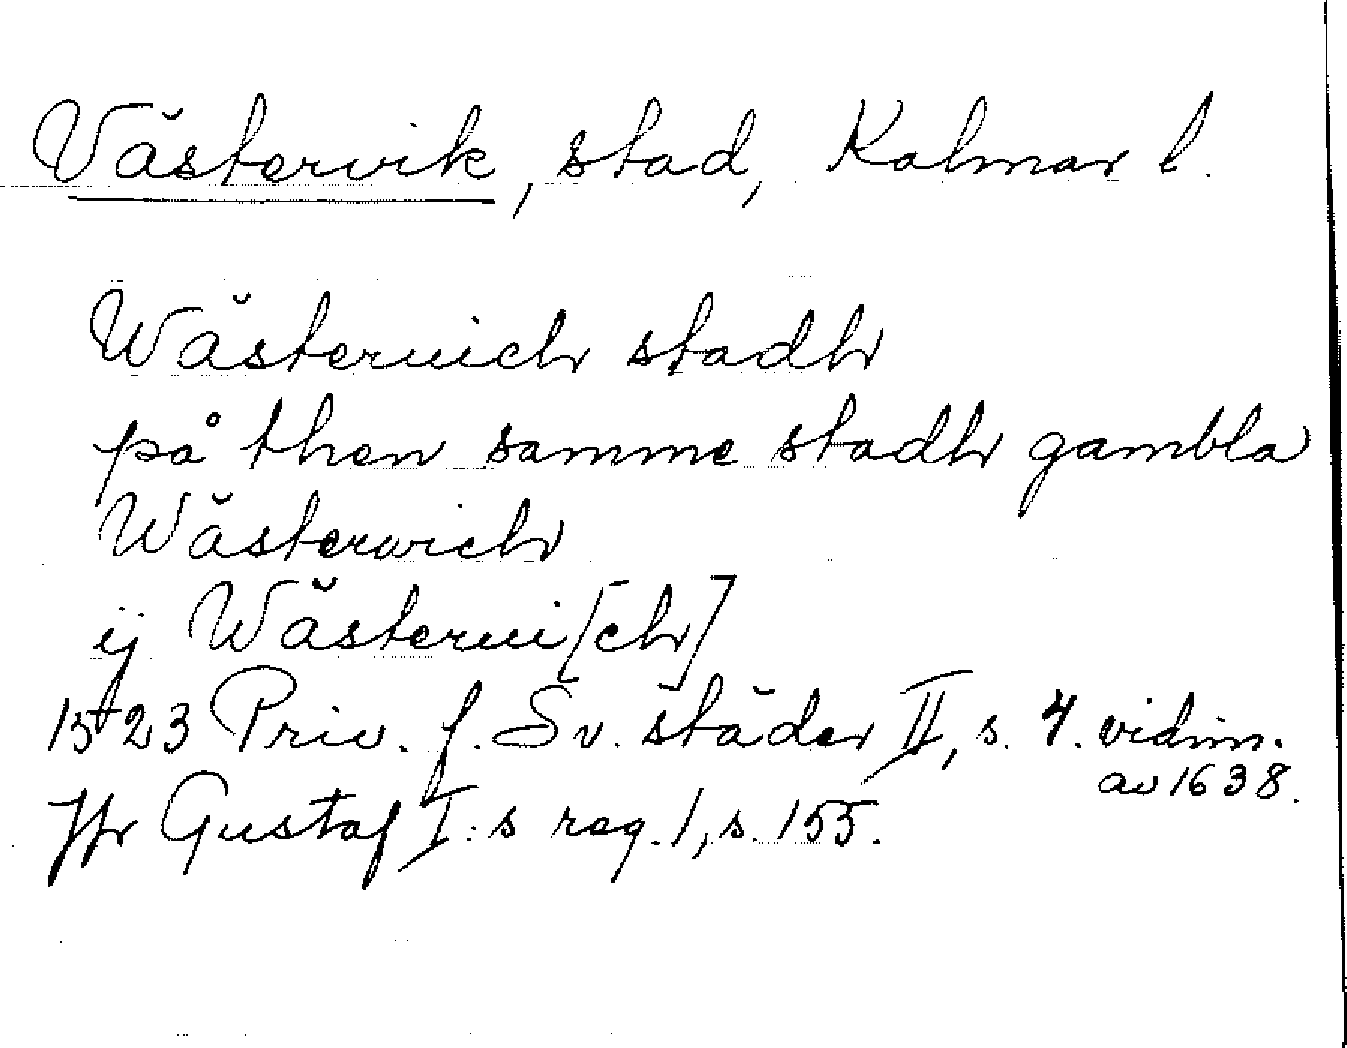 Västervik, stad, Kalmar l.
Wästeruich stadh
på then samme stadh gambla
Wästerwich
ij Wästerui[ch]
1523 Priv. f. Sv. städer II, s. 4. vidim.
av 1638.
Jfr Gustaf I:s reg. 1, s. 155.